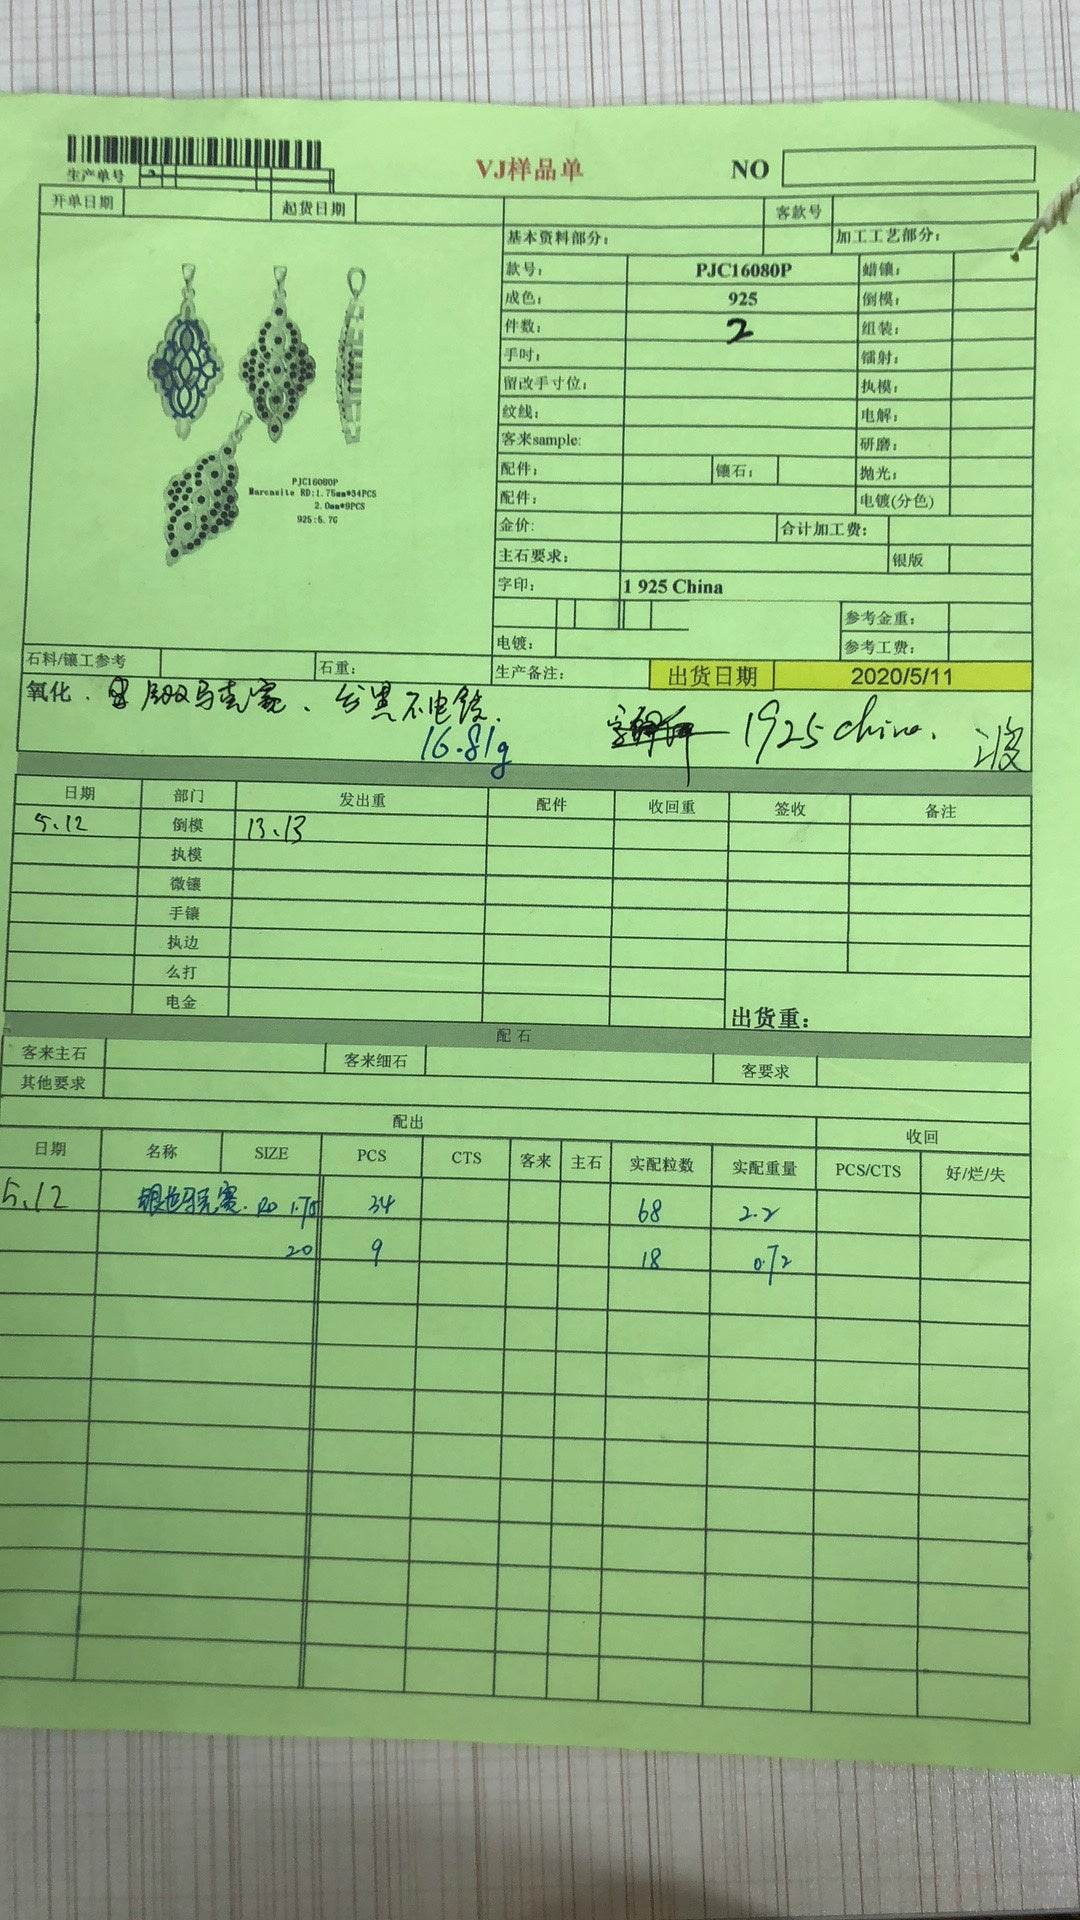 VJ样品单 NO
生产单号
开单日期 起货日期 客款号
基本资料部分: 加工工艺部分:
款号: PJC16080P 蜡镶:
成色: 925 倒模:
件数: 2 组装:
手吋: 镭射:
留改手寸位: 执模:
纹线: 电解:
客来sample: 研磨:
配件: 镶石: 抛光:
配件: 电镀(分色)
金价: 合计加工费:
主石要求: 银版
字印: 1 925 China
参考金重:
电镀: 参考工费:
PJC16080P
Marcasite RD:1.75mm*34PCS
2.0mm*9PCS
925:5.7G
石料/镶工参考 石重: 生产备注: 出货日期 2020/5/11
氧化、 马克赛、 不电镀.
1925 china.
16.81g
日期 部门 发出重 配件 收回重 签收 备注
5.12 倒模 13.13
执模
微镶
手镶
执边
么打
电金
出货重:
配石
客来主石 客来细石 客要求
其他要求
配出 收回
日期 名称 SIZE PCS CTS 客来 主石 实配粒数 实配重量 PCS/CTS 好/烂/失
5.12 马克赛. RD 1.75 34 68 2.2
20 9 18 0.72